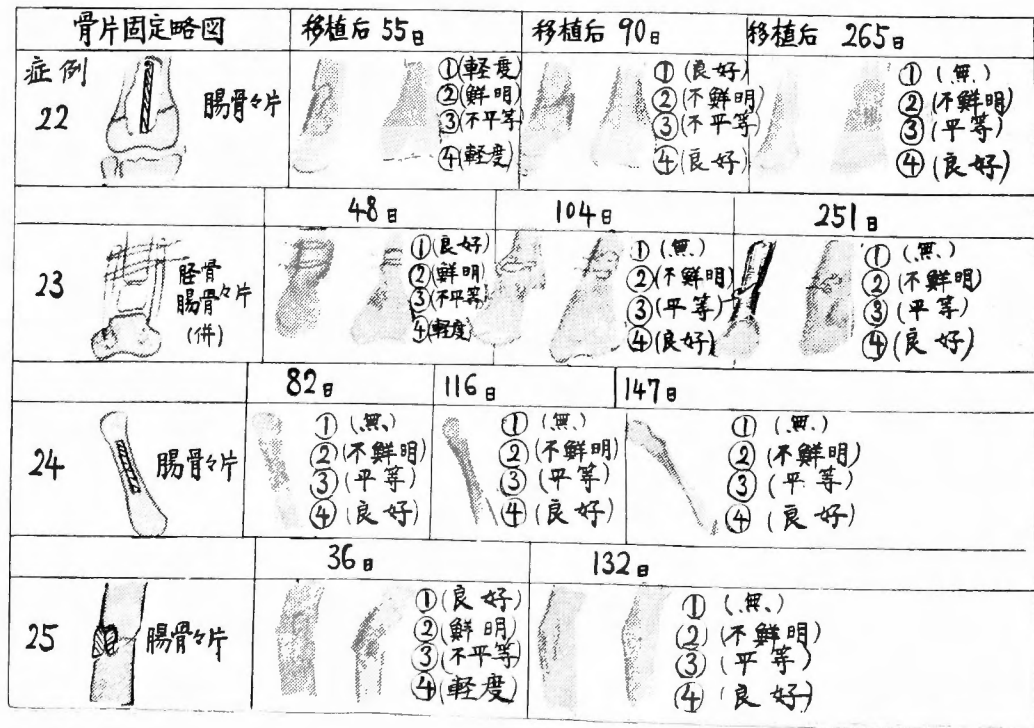 骨片固定略図 移植后 55日 移植后 90日 移植后 265日
症例
22
腸骨々片
①(軽度)
②(鮮明)
③(不平等)
④(軽度)
①(良好)
②(不鮮明)
③(不平等)
④(良好)
①(無)
②(不鮮明)
③(平等)
④(良好)
48日 104日 251日
23
胫骨
腸骨々片
(併)
①(良好)
②(鮮明)
③(不平等)
④(軽度)
①(無)
②(不鮮明)
③(平等)
④(良好)
①(無)
②(不鮮明)
③(平等)
④(良好)
82日 116日 147日
24
腸骨々片
①(無)
②(不鮮明)
③(平等)
④(良好)
①(無)
②(不鮮明)
③(平等)
④(良好)
①(無)
②(不鮮明)
③(平等)
④(良好)
36日 132日
25
腸骨々片
①(良好)
②(鮮明)
③(不平等)
④(軽度)
①(無)
②(不鮮明)
③(平等)
④(良好)